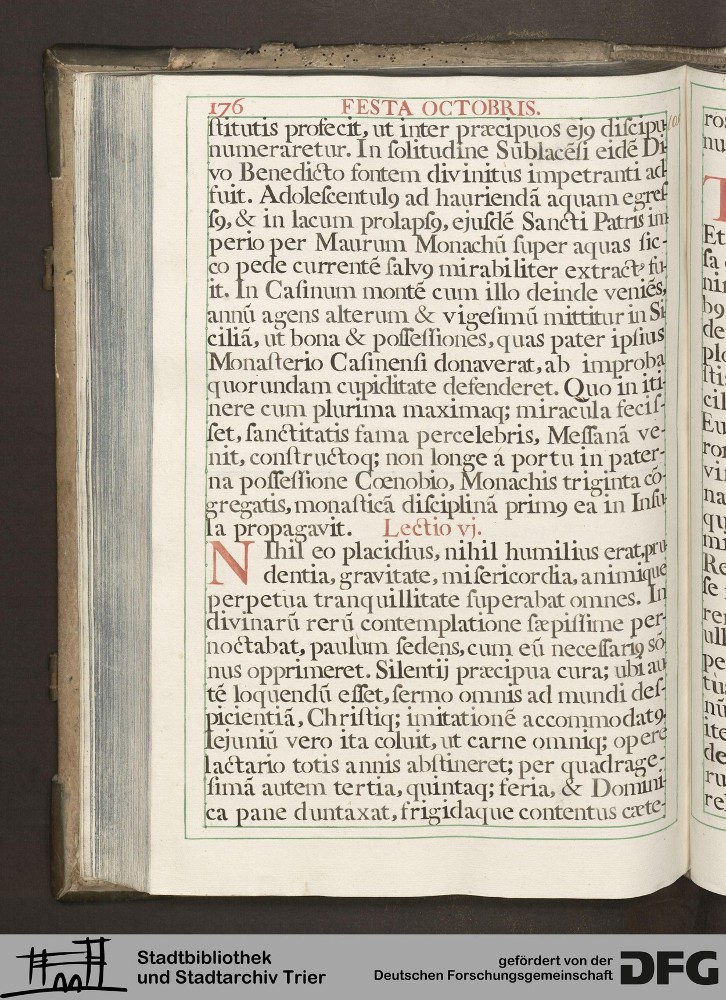 176 FESTA OCTOBRIS.
ſtitutis profecit, ut inter præcipuos ejꝯ diſcipu-
numeraretur. In ſolitudine Sublacẽſi eidẽ Di-
vo Benedicto fontem divinitus impetranti ad
fuit. Adoleſcentulꝯ ad hauriendā aquam egreſ-
ſꝯ, & in lacum prolapſꝯ, ejuſdē Sancti Patris im
perio per Maurum Monachū ſuper aquas ſic-
co pede currentē ſalvꝯ mirabiliter extractꝯ fu-
it. In Caſinum montē cum illo deinde veniēs,
annū agens alterum & vigeſimū mittitur in Si
ciliā, ut bona & poſſeſſiones, quas pater ipſius
Monaſterio Caſinenſi donaverat, ab improba
quorundam cupiditate defenderet. Quo in iti-
nere cum plurima maximaq; miracula feciſ-
ſet, ſanctitatis fama percelebris, Meſſanā ve-
nit, conſtructoq; non longe á portu in pater-
na poſſeſſione Cœnobio, Monachis triginta cō-
gregatis, monaſticā diſciplinā primꝯ ea in Inſu
la propagavit. Lectio vj.
NIhil eo placidius, nihil humilius erat, pru
dentia, gravitate, miſericordia, animique
perpetua tranquillitate ſuperabat omnes. In
divinarū rerū contemplatione ſæpiſſime per-
noctabat, paulum ſedens, cum eū neceſſariꝯ ſō-
nus opprimeret. Silentij præcipua cura; ubi au
tē loquendū eſſet, ſermo omnis ad mundi deſ-
picientiā, Chriſtiq; imitationē accommodatꝯ.
Iejuniū vero ita coluit, ut carne omniq; opere
lactario totis annis abſtineret; per quadrage-
ſimā autem tertia, quintaq; feria, & Domini-
ca pane duntaxat, frigidaque contentus cæte-
Stadtbibliothek
und Stadtarchiv Trier
gefördert von der
Deutschen Forschungsgemeinschaft
DFG